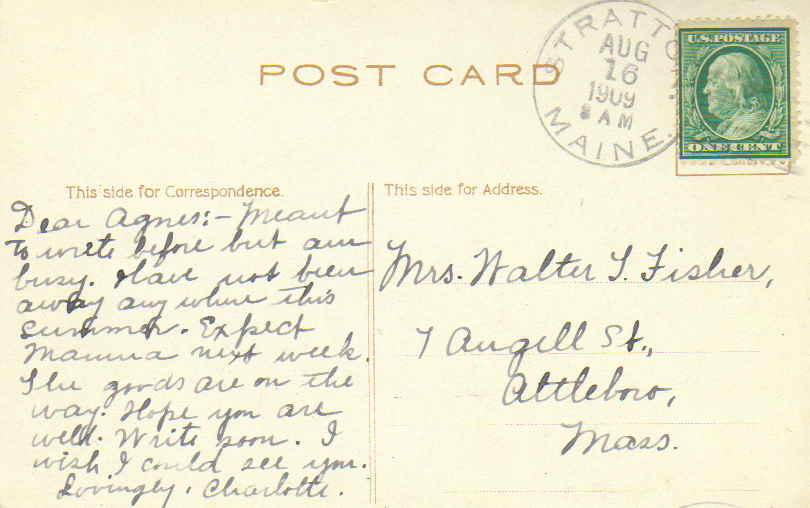 POST CARD
STRATTON
MAINE.
AUG
16
1909
8 AM
U.S. POSTAGE
ONE CENT
This side for Correspondence.
Dear Agnes:- Meant
to write before but am
busy. Have not been
away any where this
summer. Expect
Mamma next week.
The goods are on the
way. Hope you are
well. Write soon. I
wish I could see you.
Lovingly, Charlotte.
This side for Address.
Mrs. Walter S. Fisher,
7 Angell St.,
Attleboro,
Mass.